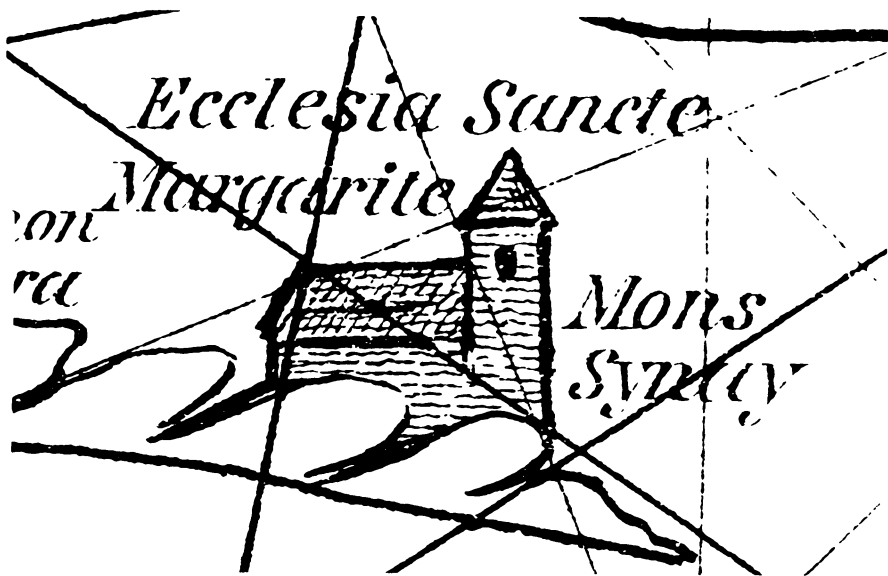 Ecclesia Sancte
Margarite
Mons
Synay